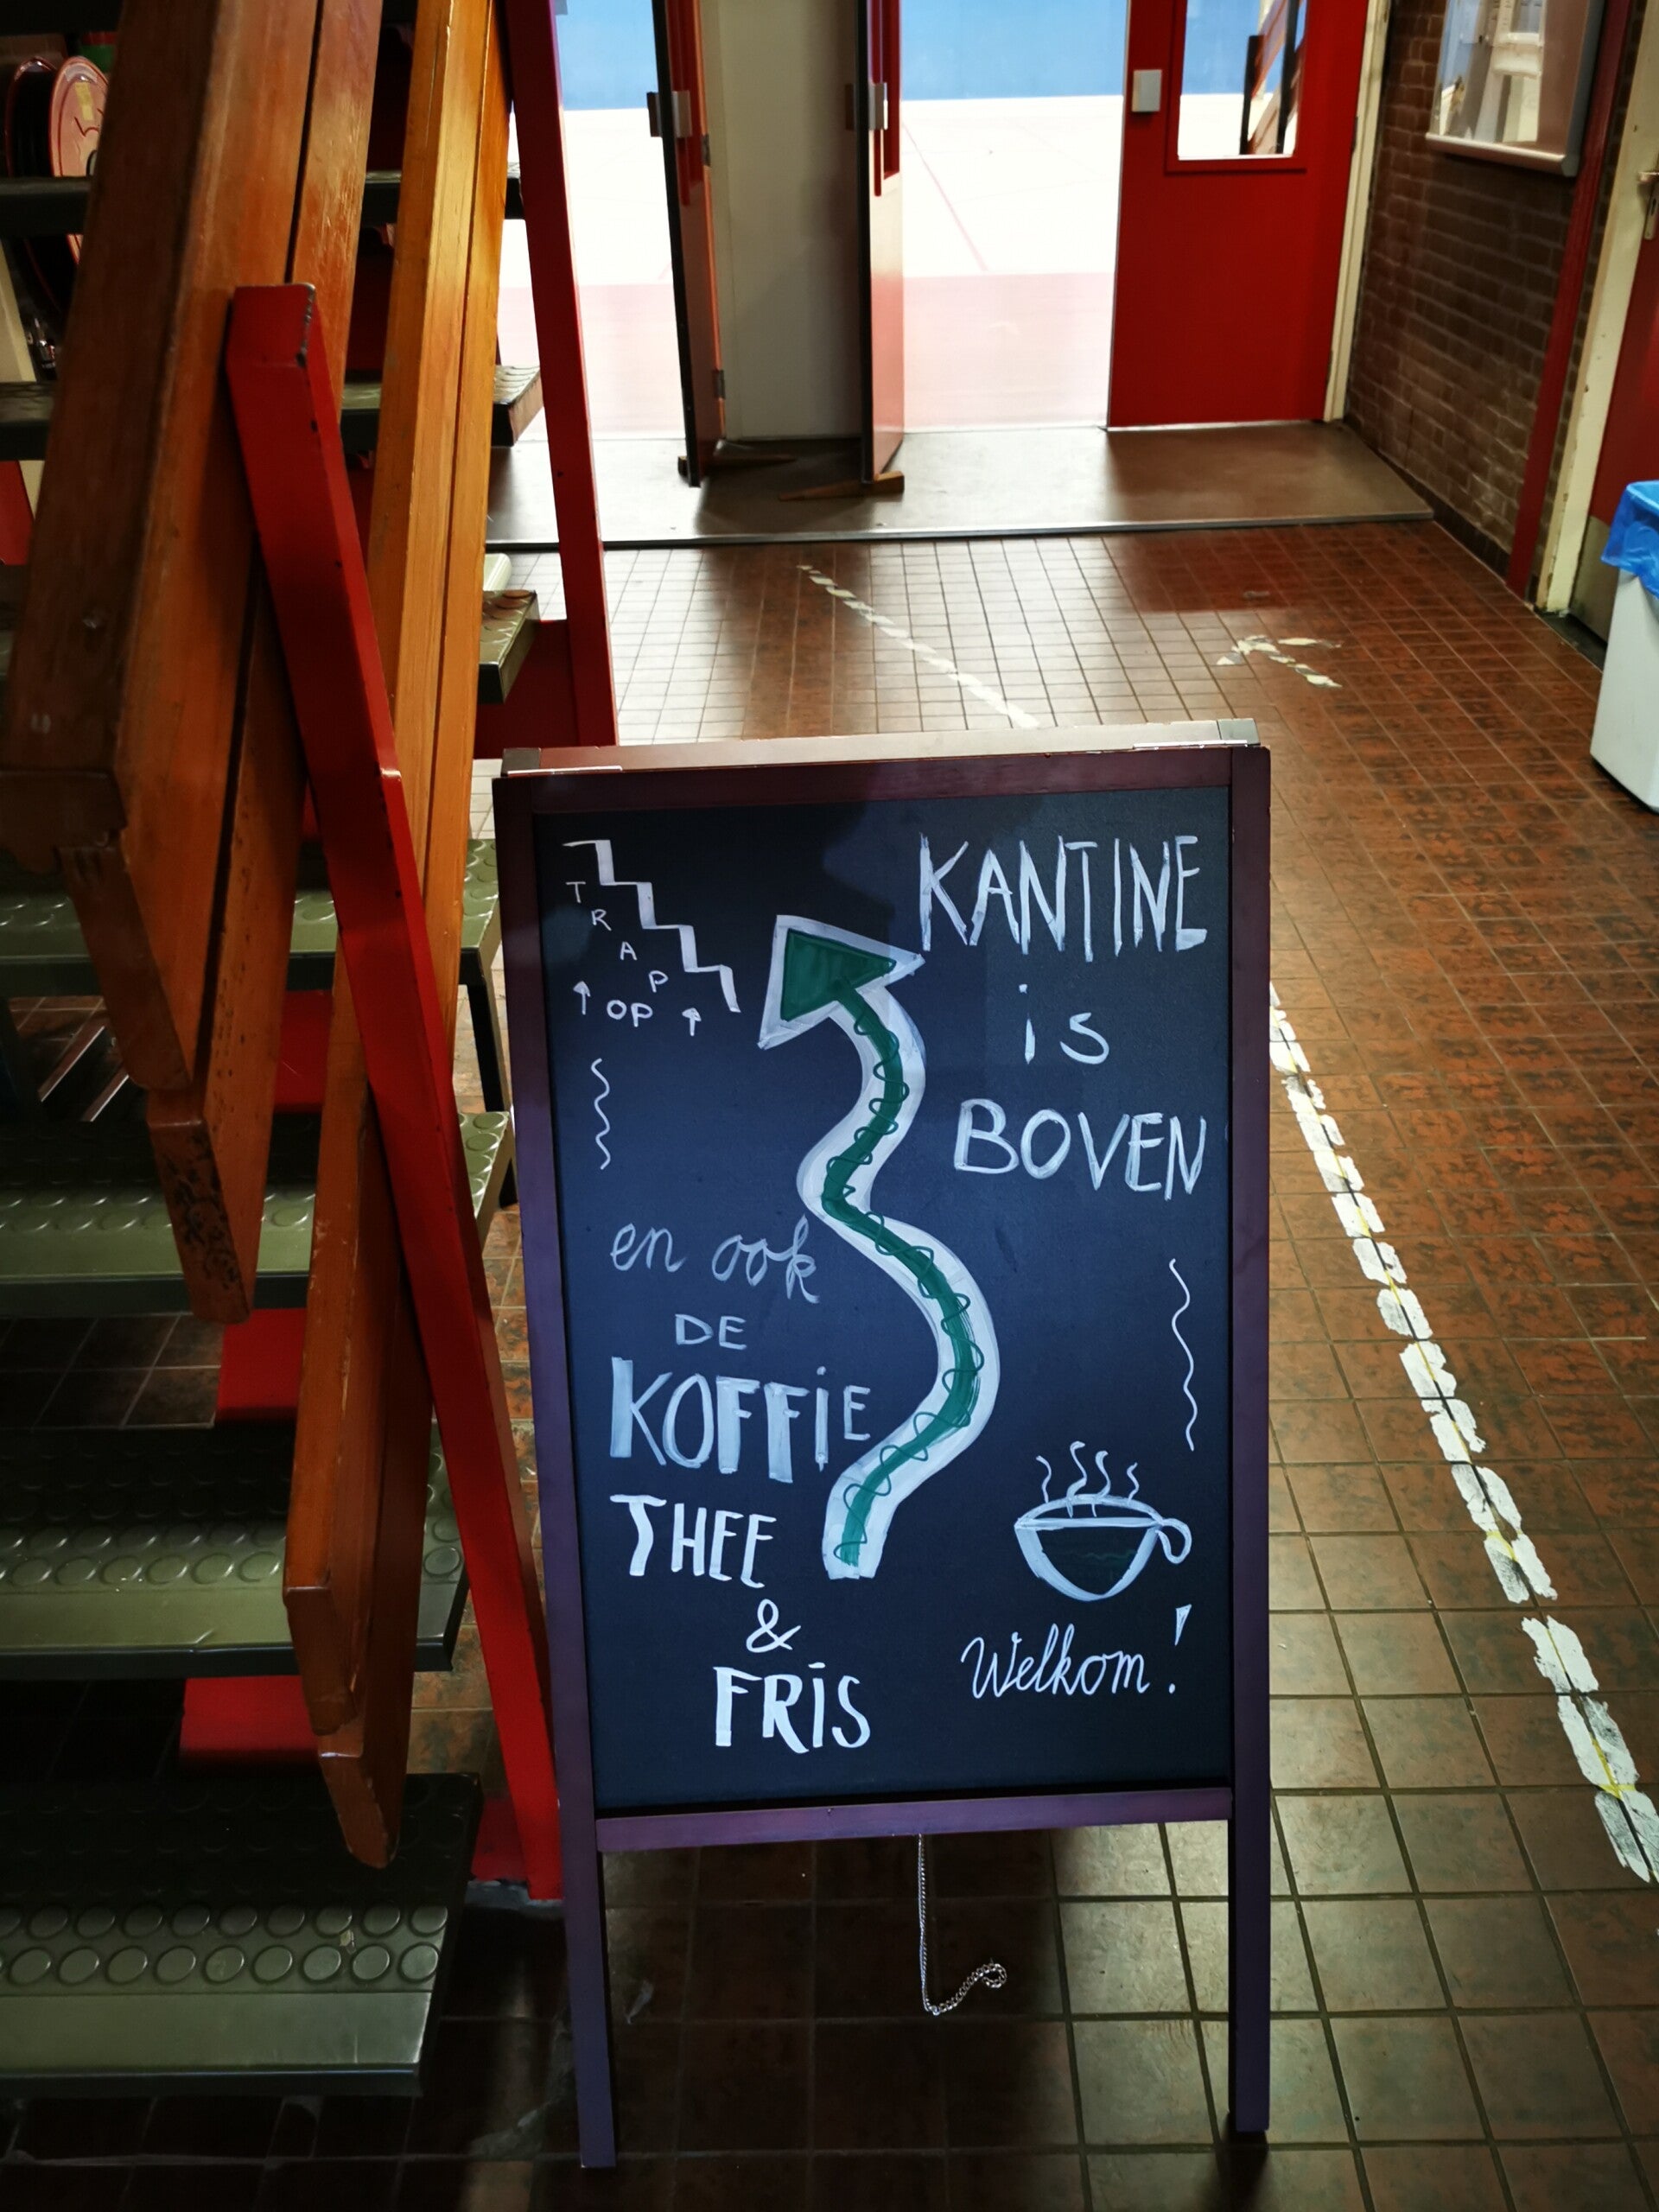 KANTINE
is
BOVEN
TRAP
↑ OP ↑
en ook
DE
KOFFIE
THEE
&
FRIS
Welkom!